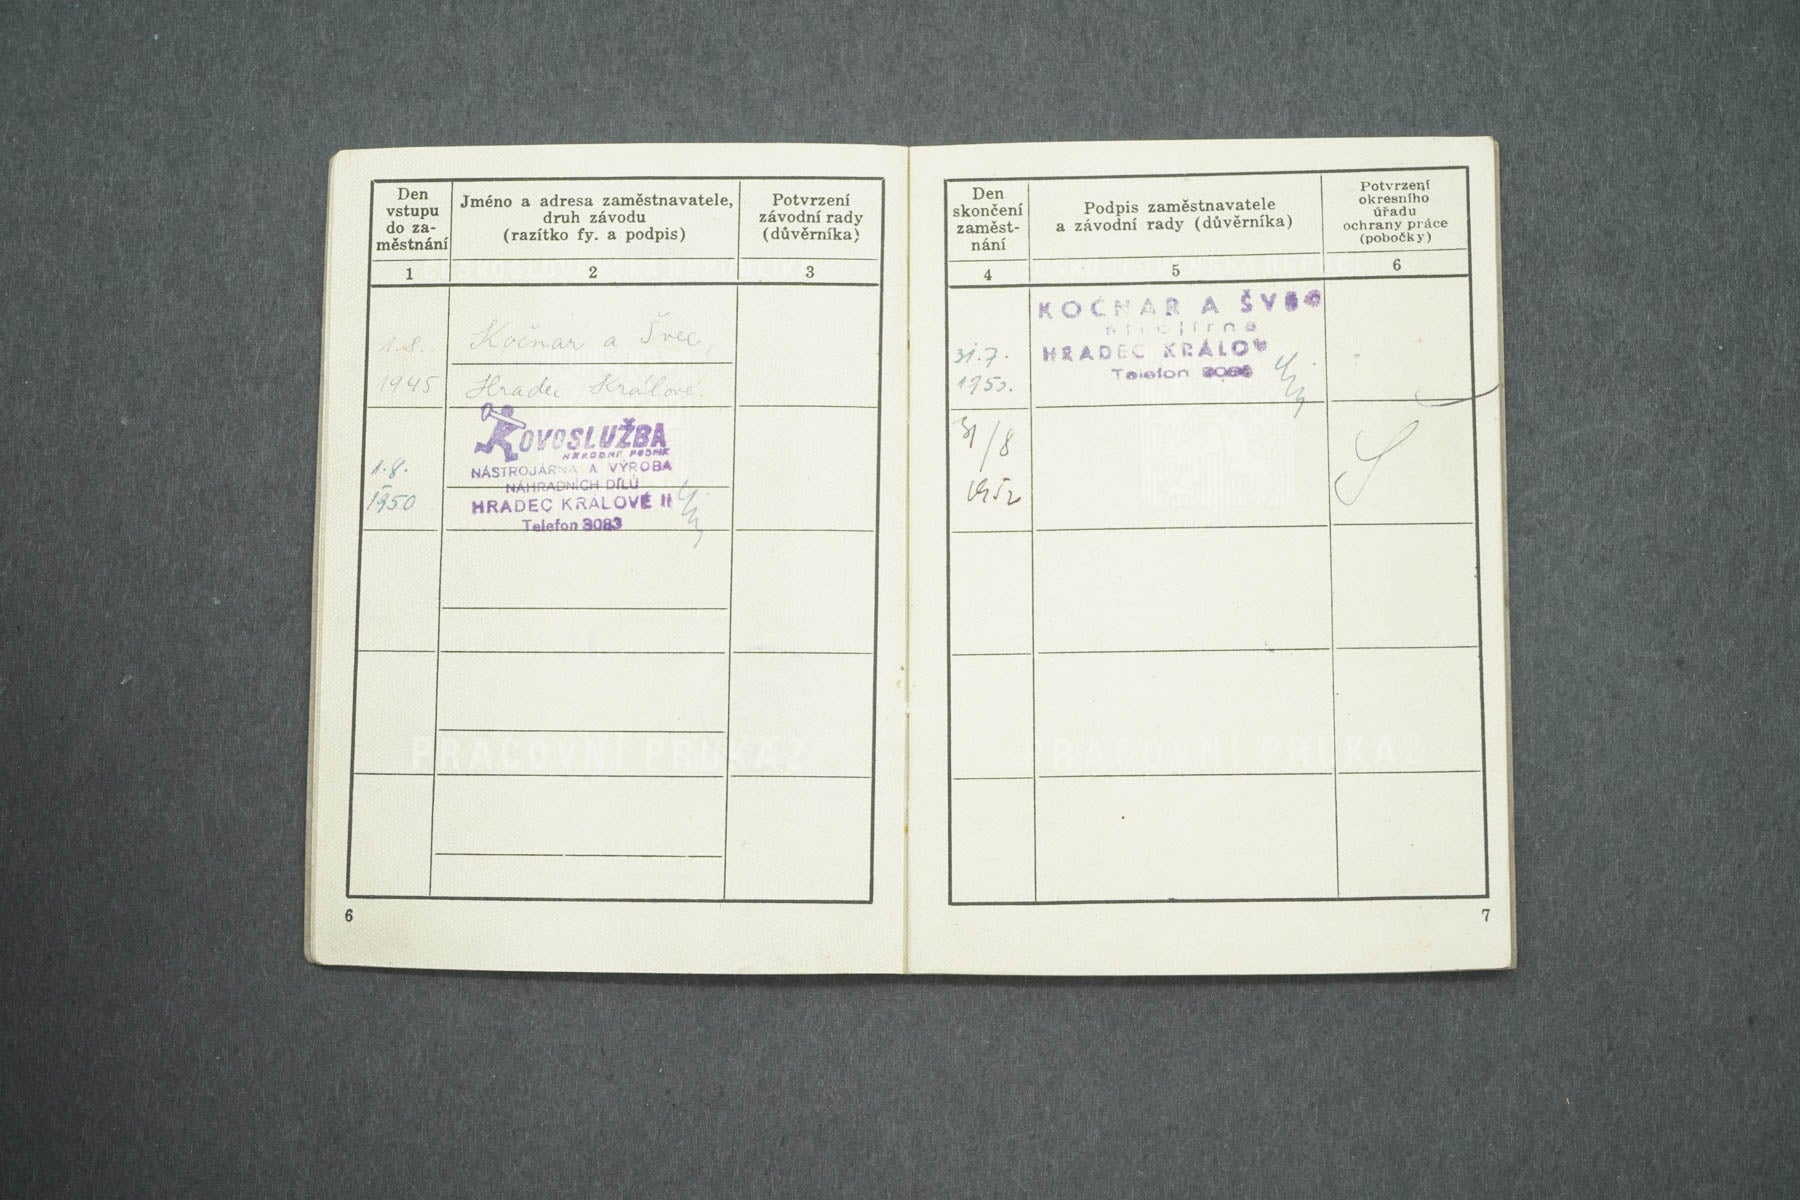 Den
vstupu
do za-
městnání
Jméno a adresa zaměstnavatele,
druh závodu
(razítko fy. a podpis)
Potvrzení
závodní rady
(důvěrníka)
1
2
3
1.8.
1945
Kočnar a Švec,
Hradec Králové.
1.8.
1950
KOVOSLUŽBA
NÁRODNÍ PODNIK
NÁSTROJÁRNA A VÝROBA
NÁHRADNÍCH DÍLŮ
HRADEC KRÁLOVÉ II
Telefon 3083
PRACOVNÍ PRŮKAZ
6
Den
skončení
zaměst-
nání
Podpis zaměstnavatele
a závodní rady (důvěrníka)
Potvrzení
okresního
úřadu
ochrany práce
(pobočky)
4
5
6
31.7.
1950.
KOČNAR A ŠVEC
strojírna
HRADEC KRÁLOV
Telefon
31/8
1952
PRACOVNÍ PRŮKAZ
7